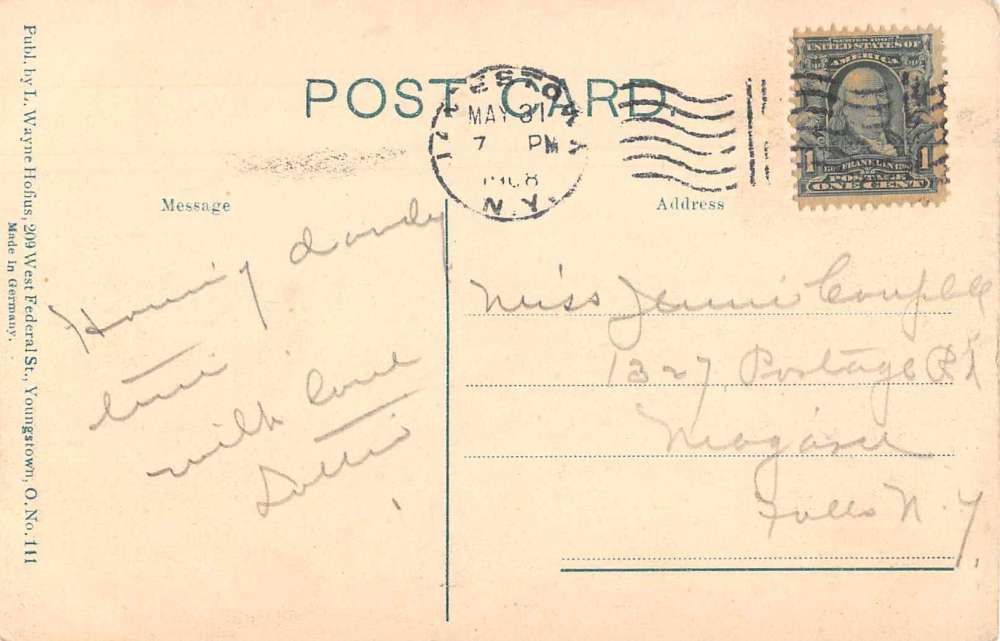 POST CARD.
MAY 31
7 PM
1908
N.Y.
SERIES 1902
UNITED STATES OF
AMERICA
FRANKLIN
1 1
POSTAGE
ONE CENT
Message
Address
Having dandy
time
with love
Dottie
Miss Jennie
1327 Portage Rd
Niagara
Falls N.Y.
Publ. by L. Wayne Hofius, 209 West Federal St., Youngstown, O. No. 111
Made in Germany.